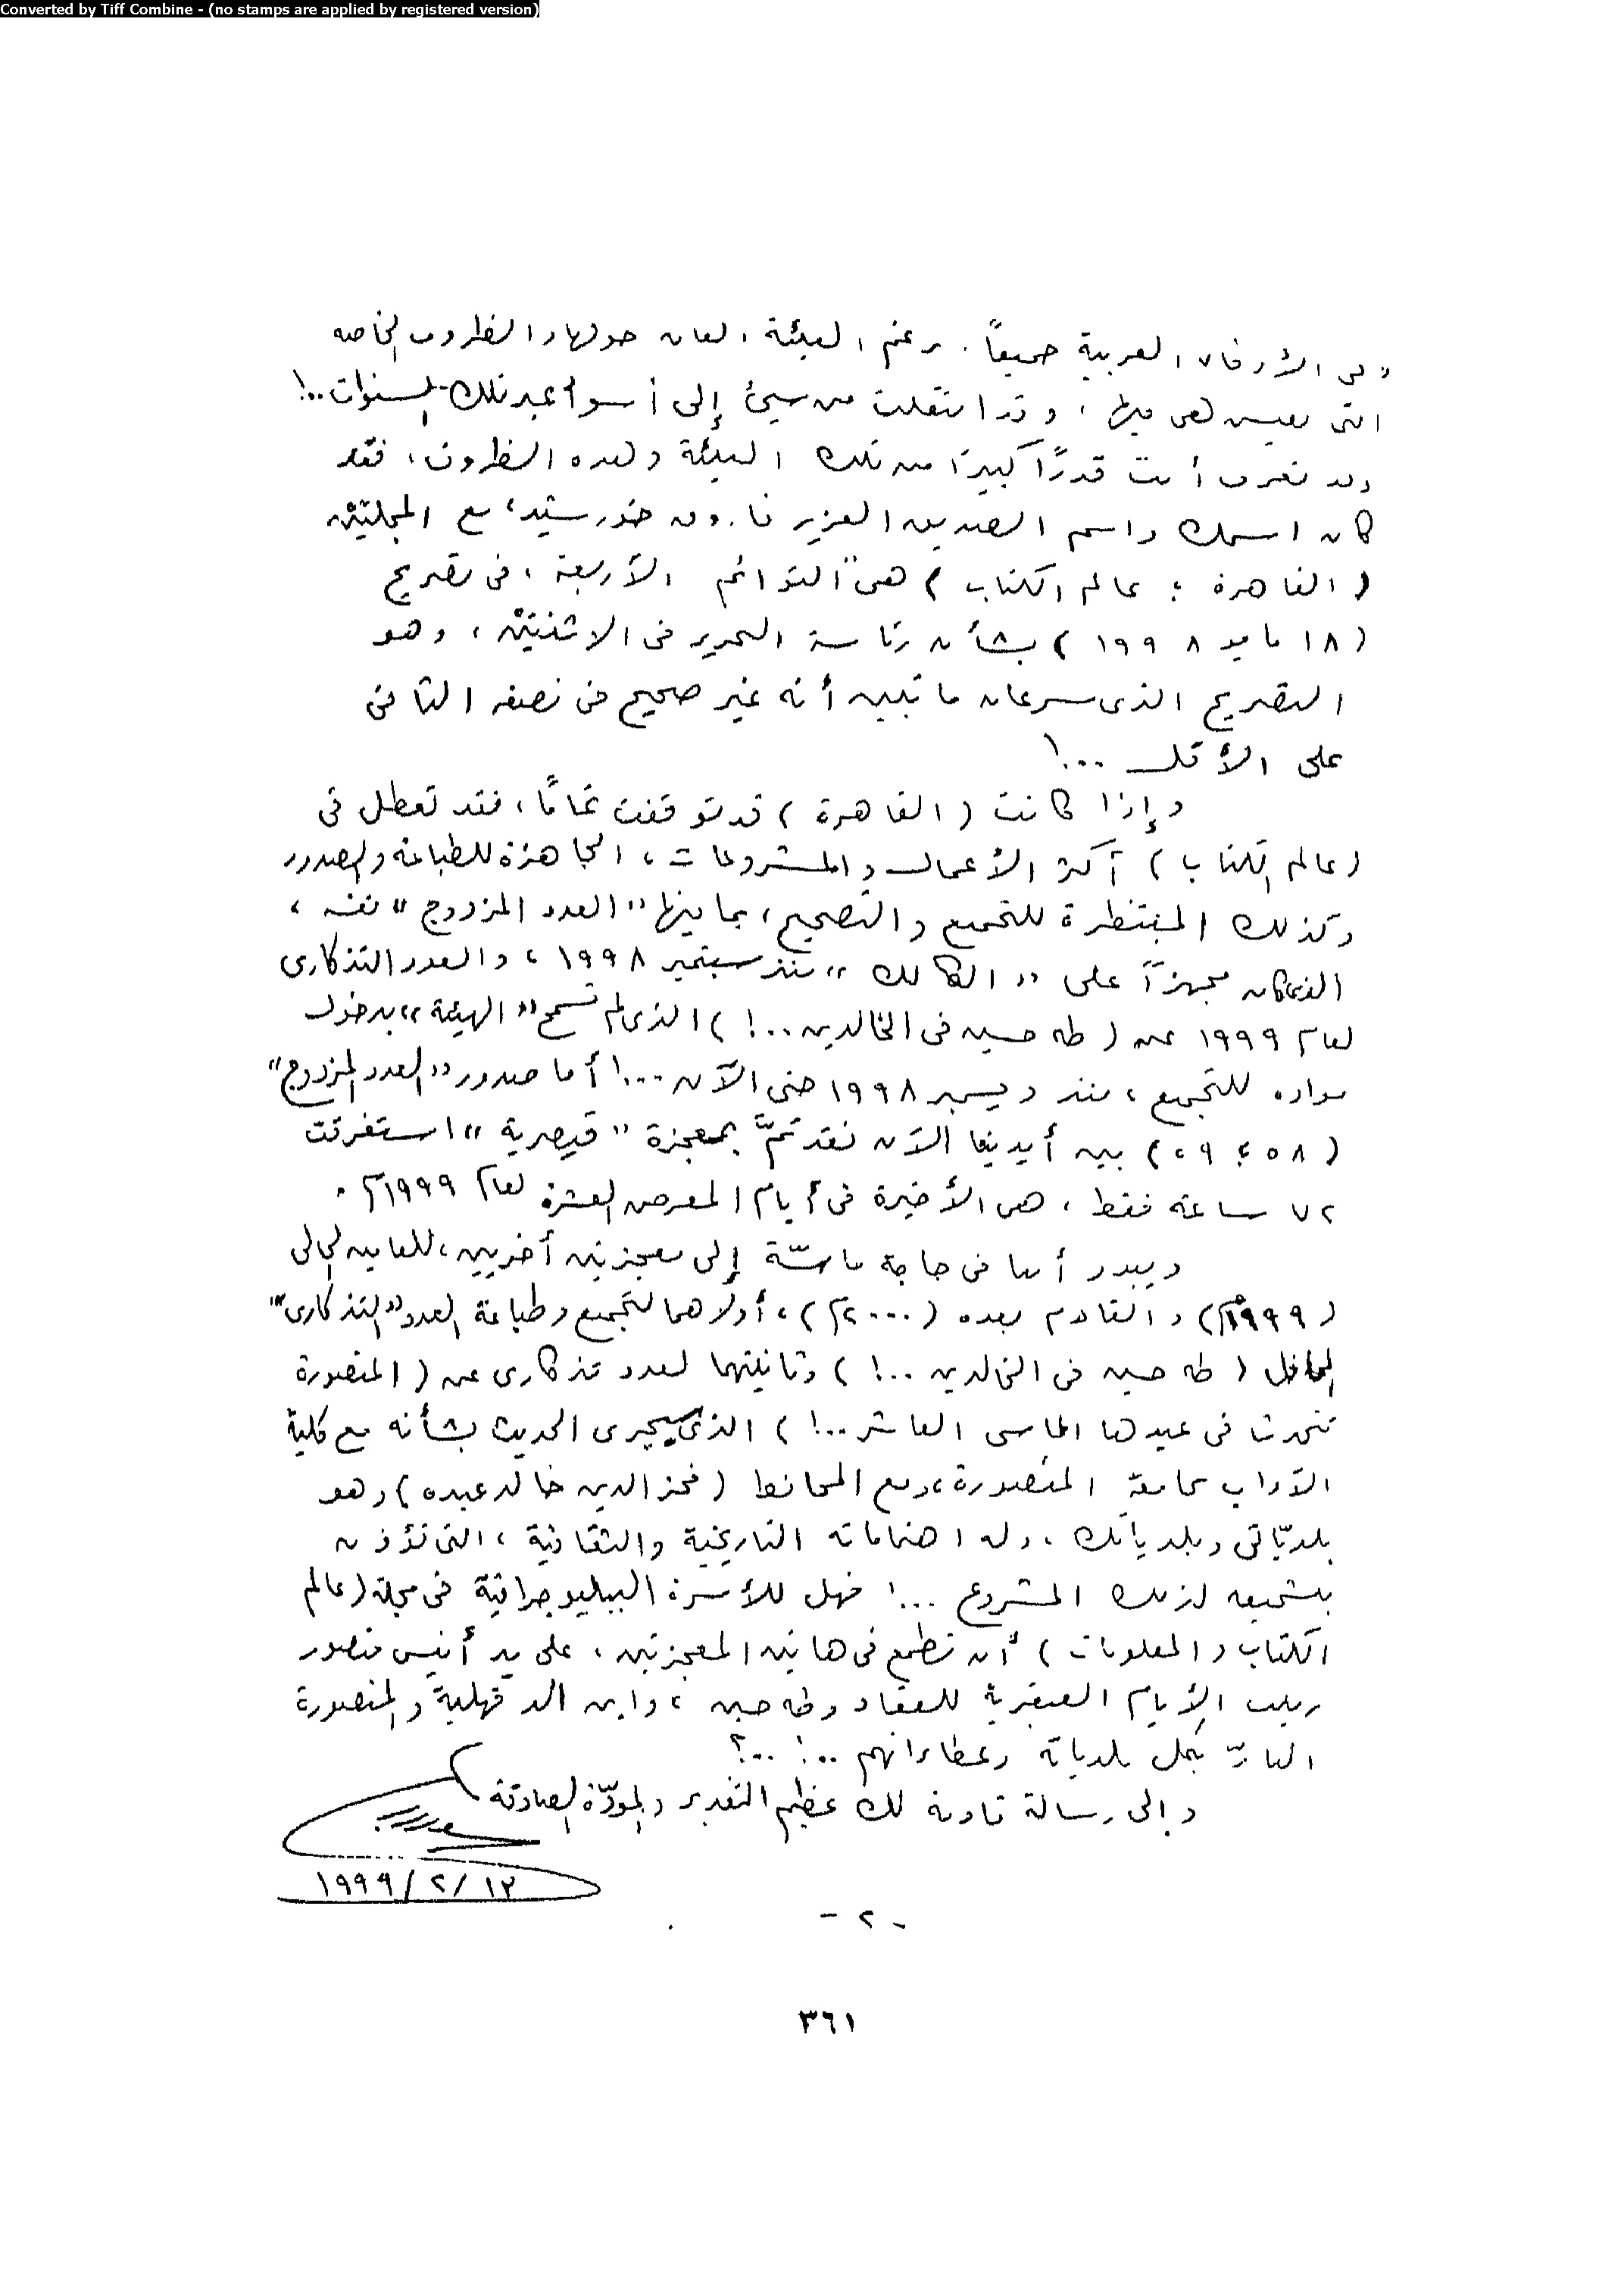 Converted by Tiff Combine - (no stamps are applied by registered version)
العربية جميعاً. برغم البيئة العامة حولها والظروف الخاصة
التى تعيش هى فيها، وقد انتقلت من سيئ إلى أسوأ عبر تلك السنوات..!
وقد تعرف أنت قدرًا كبيرًا من تلك البيئة وهذه الظروف، فقد
كان اسمك واسم الصديق العزيز فاروق خورشيد، مع المجلتيْن
(القاهرة؛ عالم الكتاب) هى التوائم الأربعة، فى تصريح
(١٨ مايو ١٩٩٨) بشأن رئاسة التحرير فى الاثنتيْن، وهو
التصريح الذى سرعان ما تبين أنه غير صحيح فى نصفه الثانى
على الأقل ...!
وإذا كانت (القاهرة) قد توقفت تمامًا، فقد تعطل فى
(عالم الكتاب) أكثر الأعمال والمشروعات، الجاهزة للطباعة والصدور
وكذلك المنتظرة للتجميع والتصحيح، بما فيها "العدد المزدوج" نفسه،
الذى كان مجهزاً على "الكالك" منذ سبتمبر ١٩٩٨، والعدد التذكارى
لعام ١٩٩٩ عن (طه حسين فى الخالدين ..!) الذى لم تسمح "الهيئة" بدخول
مواده للتجميع، منذ ديسمبر ١٩٩٨ حتى الآن ...! أما صدور "العدد المزدوج"
(٥٨؛ ٥٩) بين أيدينا الآن فقد تمَّ بمعجزة "قيصرية" استغرقت
٧٢ ساعة فقط، هى الأخيرة فى أيام المعرض العشرة لعام ١٩٩٩م.
ويبدو أننا فى حاجة ماسّة إلى معجزتين أخريين، للعامين الحالى
(١٩٩٩م) والقادم بعده (٢٠٠٠م)، أولاهما لتجميع وطباعة العدد "التذكارى"
الحافل (طه حسين فى الخالدين ..!) وثانيتهما لعدد تذكارى عن (المنصورة
تتحدث فى عيدها الماسى العاشر ..!) الذى يجرى الحديث بشأنه مع كلية
الآداب بجامعة المنصورة، ومع المحافظ (فخر الدين خالد عبده) وهو
بلديّاتى وبلدياتك، وله اهتماماته التاريخية والثقافية، التى تؤذن
بتشجيعه لذلك المشروع ...! فهل للأسرة الببليوجرافية فى مجلة (عالم
الكتاب والمعلومات) أن تطمع فى هاتين المعجزتين، على يد أنيس منصور
ربيب الأيام العبقرية للعقاد وطه حسين، وابن الدقهلية والمنصورة
البارّ بكل بلدياته وعطاءاتهم ..! ..؟
وإلى رسالة قادمة لك عظيم التقدير والمودّة الصادقة
١٩٩٩/٢/١٢
- ٢ -
٣٦١